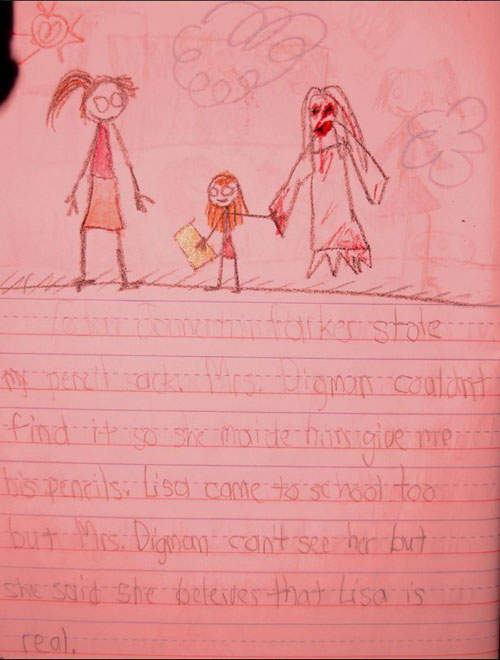 Today Parker stole
my pencil pack. Mrs. Digman couldnt
find it so she maide him give me
his pencils. Lisa came to school too
but Mrs. Digman cant see her but
she said she beleives that Lisa is
real.